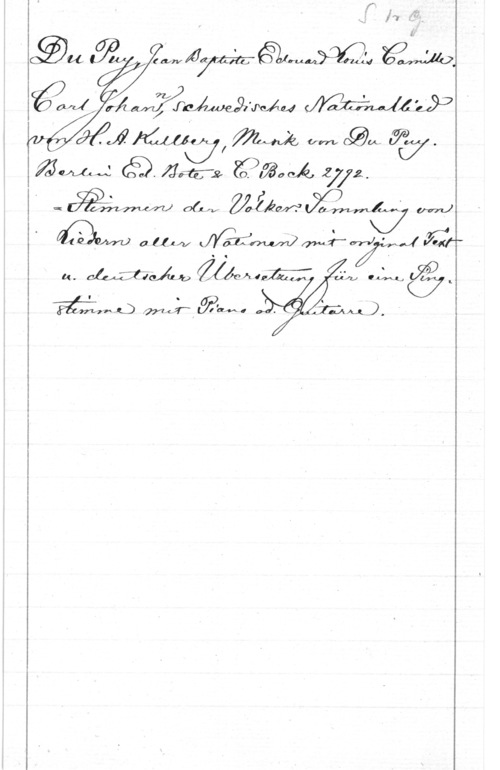 S br G
Du Puy, Jean Baptiste Edouard Louis Camille.
Carl Johann, schwedisches Nationallied
von H. A. Kullberg, Musik von Du Puy.
Berlin Ed. Bote & G. Bock 2792.
= Stimmen der Völker: Sammlung von
Liedern aller Nationen mit original Text
u. deutscher Übersetzung für eine Sing-
stimme mit Piano od. Guitarre.